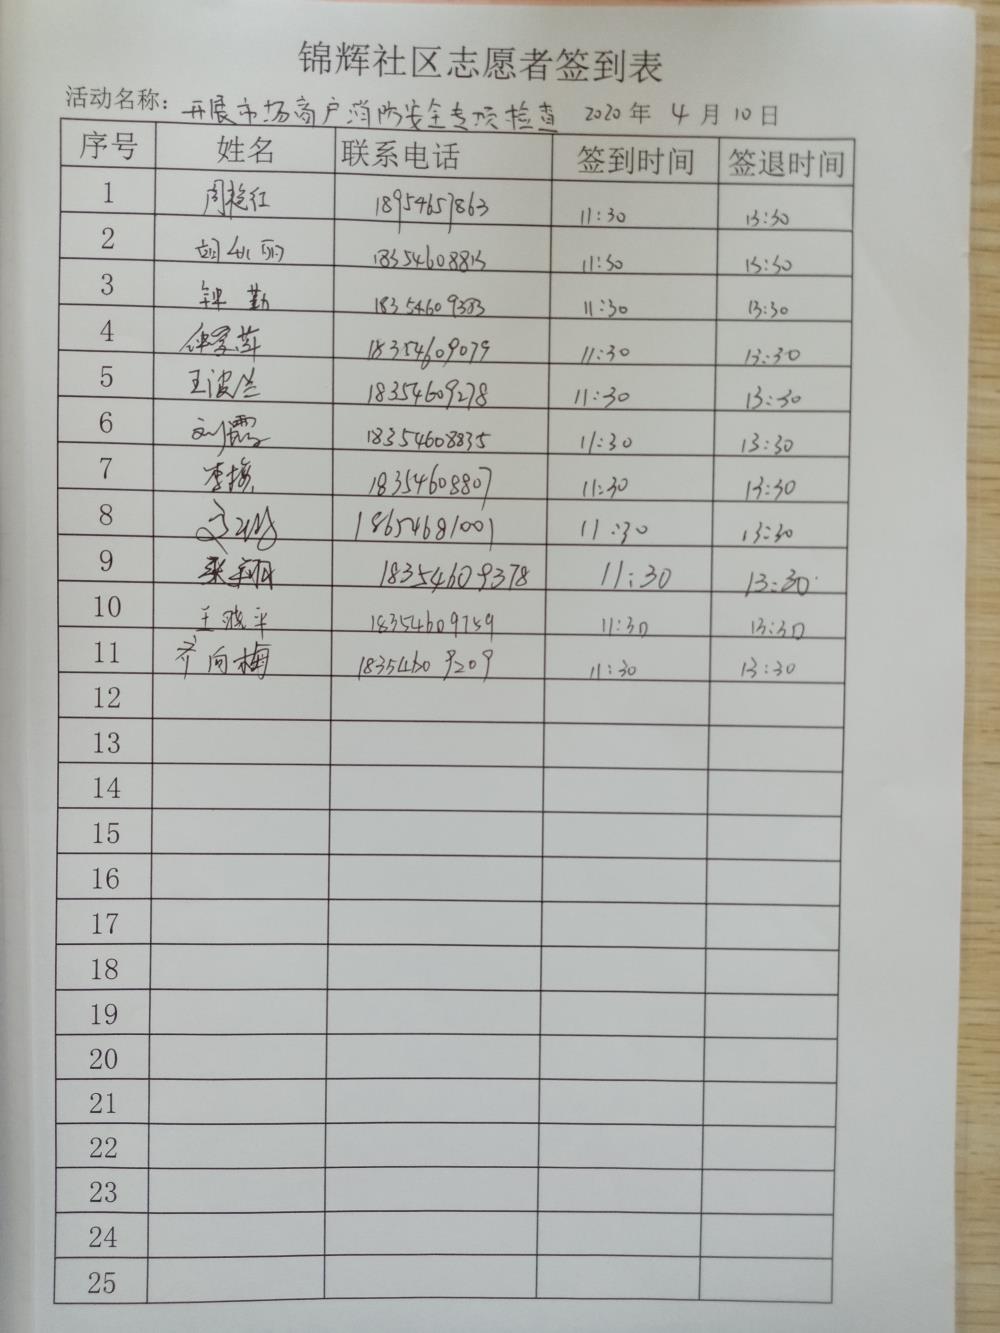 锦辉社区志愿者签到表
活动名称: 开展市场商户消防安全专项检查 2020年 4月10日
序号 姓名 联系电话 签到时间 签退时间
1 周艳红 18954657863 11:30 13:30
2 胡 丽 18354608813 11:30 13:30
3 钟勤 18354609383 11:30 13:30
4 18354609079 11:30 13:30
5 王波兰 18354609278 11:30 13:30
6 刘霞 18354608835 11:30 13:30
7 李梅 18354608807 11:30 13:30
8 18654681001 11:30 13:30
9 18354609378 11:30 13:30
10 王晓平 18354609759 11:30 13:30
11 齐向梅 18354609209 11:30 13:30
12
13
14
15
16
17
18
19
20
21
22
23
24
25